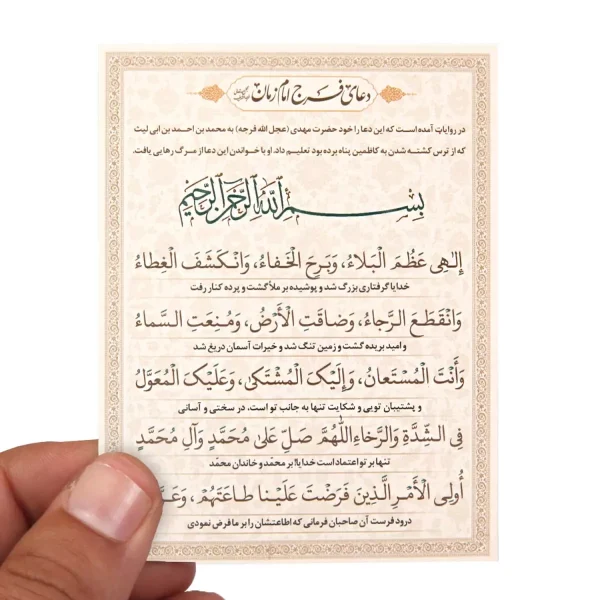 دعای فرج امام زمان
در روایات آمده است که این دعا را خود حضرت مهدی (عجل الله فرجه) به محمد بن احمد بن ابی لیث
که از ترس کشته شدن به کاظمین پناه برده بود تعلیم داد. او با خواندن این دعا از مرگ رهایی یافت.
بِسْمِ اللهِ الرَّحْمٰنِ الرَّحِیْمِ
إِلٰهِی عَظُمَ الْبَلاءُ، وَبَرِحَ الْخَفاءُ، وَانْكَشَفَ الْغِطاءُ
خدایا گرفتاری بزرگ شد و پوشیده بر ملا گشت و پرده کنار رفت
وَانْقَطَعَ الرَّجاءُ، وَضاقَتِ الْأَرْضُ، وَمُنِعَتِ السَّماءُ
و امید بریده گشت و زمین تنگ شد و خیرات آسمان دریغ شد
وَأَنْتَ الْمُسْتَعانُ، وَإِلَیْکَ الْمُشْتَکیٰ، وَعَلَیْکَ الْمُعَوَّلُ
و پشتیبان تویی و شکایت تنها به جانب تو است، در سختی و آسانی
فِی الشِّدَّةِ وَالرَّخاءِ اللّٰهُمَّ صَلِّ عَلیٰ مُحَمَّدٍ وَآلِ مُحَمَّدٍ
تنها بر تو اعتماد است خدایا! بر محمّد و خاندان محمّد
أُولِی الْأَمْرِ الَّذِینَ فَرَضْتَ عَلَیْنا طاعَتَهُمْ،
درود فرست آن صاحبان فرمانی که اطاعتشان را بر ما فرض نمودی